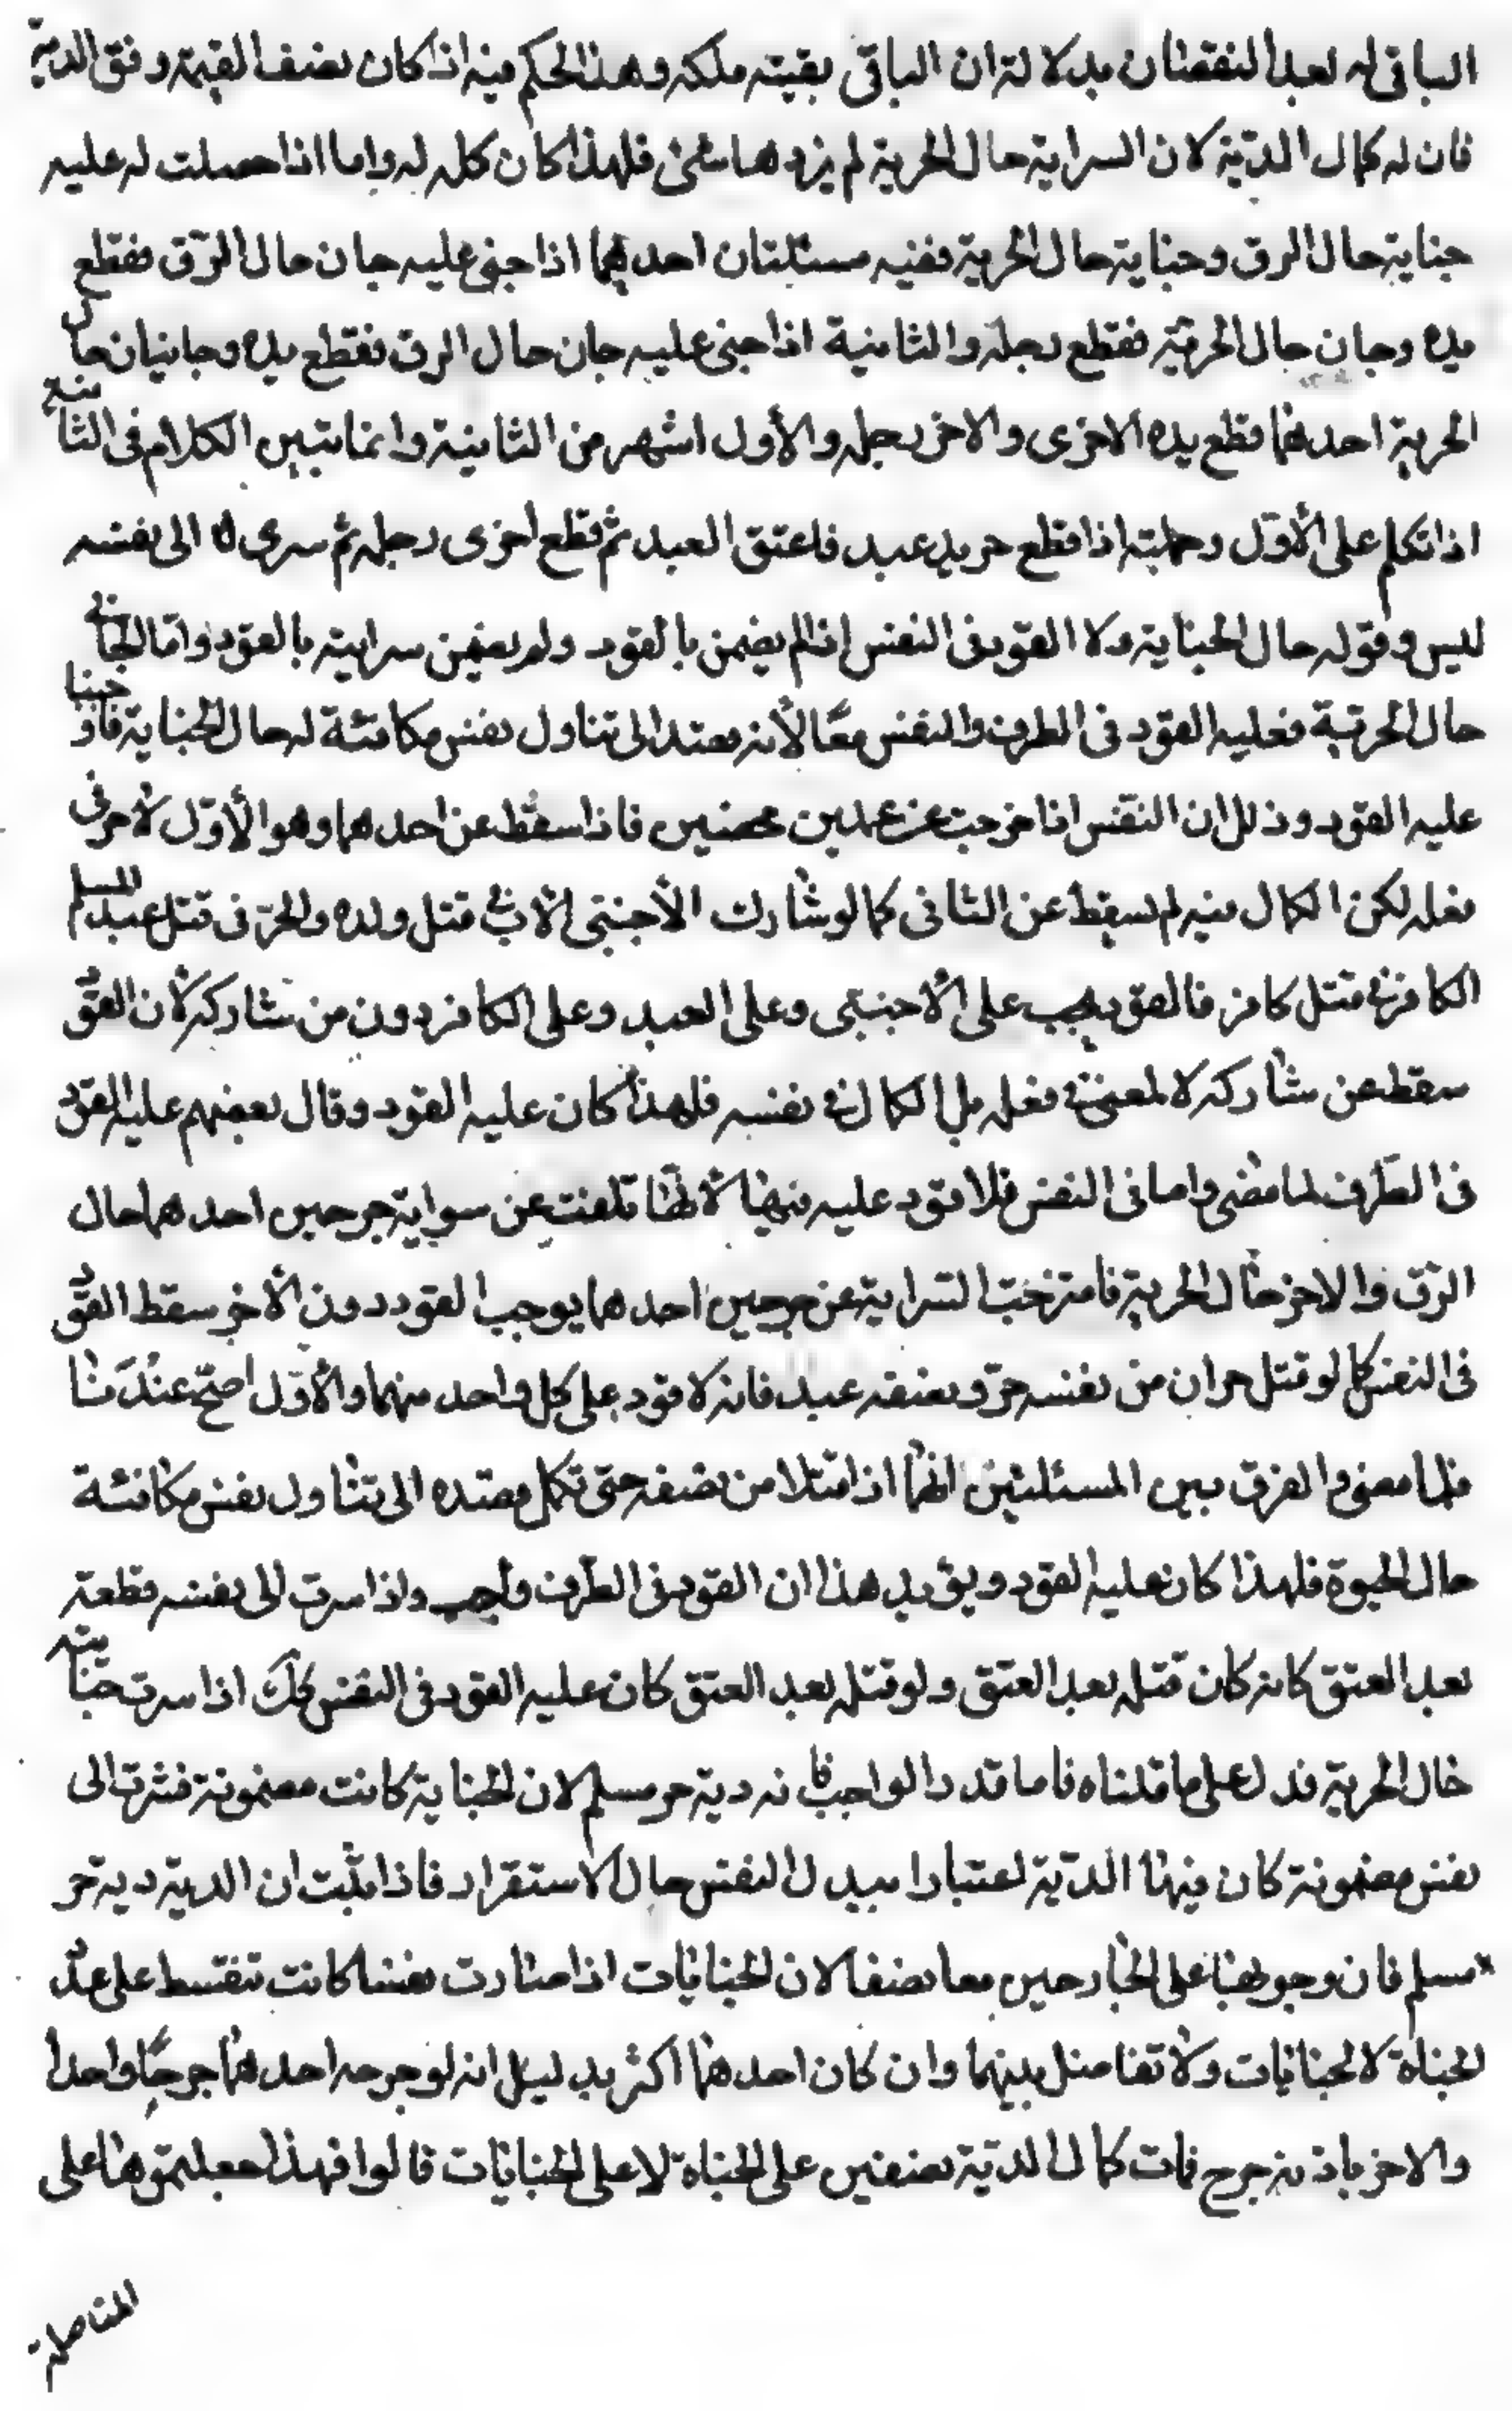 الباقى له بعد النقصان بدلالة ان الباقى بقيته ملكه وهذا الحكم فيه اذا كان نصف القيمة وفق الدية
فان له كمال الدية لان السراية حال الحرية لم يزدها شئ فلهذا كان كله له واما اذا حصلت له عليه
جناية حال الرق وجناية حال الحرية ففيه مسئلتان احدهما اذا جنى عليه جان حال الرق فقطع
يده وجان حال الحرية فقطع رجله والثانية اذا جنى عليه جان حال الرق فقطع يده وجانيان حال
الحرية احدهما قطع يده الاخرى والاخر رجله والأول اشهر من الثانية وانما يتبين الكلام فى الثانية
اذا تكلم على الأول وجملته اذا قطع حر يد عبد فاعتق العبد ثم قطع اخرى رجله ثم سرى الى نفسه
ليس وقوله حال الجناية ولا القود فى النفس اذا لم يضمن بالقود ولم يضمن سرايته بالقود واما الجانى
حال الحرية فعليه القود فى الطرف والنفس معًا لأنه معتد الى تناول نفس مكافئة له حال الجناية فاذا
عليه القود وذلك ان النفس اذا خرجت عن عمدين محضين فاذا سقط عن احدهما وهو الأول لامر فى
فعله لكن الكمال فيه لم يسقط عن الثانى كما لو شارك الأجنبى الأب فى قتل ولده والحر فى قتل عبد المسلم
الكافر فى قتل كافر فالقود يجب على الأجنبى وعلى العبد وعلى الكافر دون من شاركه لأن القود
سقط عن شاركه لا لمعنى فى فعله بل الكمال فى نفسه فلهذا كان عليه القود وقال بعضهم عليه القود
فى الطرف لما مضى واما فى النفس فلا قود عليه فيها لأنها تلفت عن سراية جرحين احدهما حال
الرق والاخر حال الحرية فامتزجت السراية عن جرحين احدهما يوجب القود دون الأخر سقط القود
فى النفس كما لو قتل حران من نفسه حر ونصفه عبد فانه لا قود على كل واحد منهما والأول اصح عندنا
فلما مضى والفرق بين المسئلتين انهما اذا قتلا من نصفه حتى تكمل معتده الى تناول نفس مكافئة
حال الحيوة فلهذا كان عليه القود ويؤيد هذا ان القود فى الطرف واجب واذا سرت الى نفسه قطعة
بعد العتق كانه كان قتله بعد العتق ولو قتله بعد العتق كان عليه القود فى النفس كك اذا سرت جنايته
حال الحرية فدل على ما قلناه فاما قدر الواجب فانه دية حر مسلم لان الجناية كانت مضمونة فسرت الى
نفس مضمونة كان فيها الدية اعتبارا ببدل النفس حال الاستقرار فاذا ثبت ان الدية دية حر
مسلم فان وجوبها على الجارحين معا نصفا لان الجنايات اذا صارت نفسا كانت تقتسط على عدد
الجناة لا الجنايات ولا تفاضل بينهما وان كان احدهما اكثر بدليل انه لو جرحه احدهما جرحًا واحدا
والاخر مادته جرح فمات كمال الدية نصفين على الجناة لا على الجنايات قالوا فهذا جعلتموها على
المفاضلة